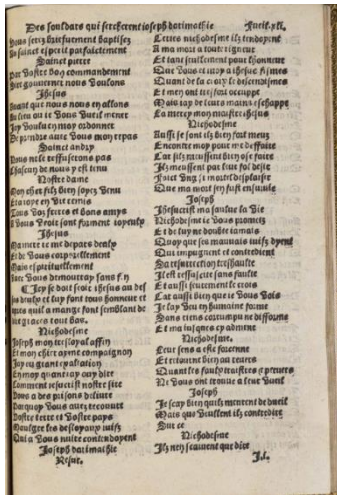 Des souldars qui sercherent ioseph darimathie Fueil.xli.
Vous serez briefuement baptisez
Du sainct esperit parfaictement
Sainct pierre
Par vostre bon commandement
Sire gouuerner nous voulons
Jhesus
Auant que nous nous en allons
Au lieu ou ie vous vueil mener
Jay voulu en moy ordonner
De prendre auec vous mon repas
Sainct andry
Nous ne le reffuserons pas
Chascun de nous y est tenu
Nostre dame
Mon cher filz bien soyez venu
Et a ioye en vie remis
Tous voz freres et bons amys
A vous veoir sont fiment ioyeulx
Jhesus
Ma mere ie me depars deulx
Et de vous corporellement
Mais espirituellement
Auec vous demourray sans fin
Cy se doit seoir ihesus au des
et quis quil a mange font semblant de
Nichodesme
Joseph mon tresloyal affin
Et mon chier ayme compaignon
Jay eu grant
En moy quant iay ouy dire
Comment iesucrist nostre sire
Vous a des prisons deliure
Par quoy vous auez recouure
Vostre terre et vostre pays
Maulgre les desloyaux iuifz
Qui a vous nuire contendoyent
Joseph darimathie
Certes nichodesme ilz tendoyent
A ma mort a toute rigueur
Et tant seullement pour lhonneur
Que vous et moy a ihesus fismes
Quant de la croix le descendismes
Et men ont tresfort occuppe
Mais iay de leurs mains eschappe
La mercy mon maistre ihesus
Nichodesme
Aussi se sont ilz bien fort meuz
Encontre moy pour me deffaire
Car ilz neussent bien ose faire
Ilz meussent par leur fol desir
Faict
Que ma mort sen fust ensuiuie
Joseph
Jhesucrist ma saulue la vie
Nichodesme ie vous prometz
Et de luy ne doubte iamais
Quoy que ses mauuais iuifz dyent
Qui impugnent et contredient
Sa resurrection treshaulte
Il est ressuscite sans faulte
Et aussi seurement le crois
Car aussi bien que ie vous vois
Je lay veu en humaine forme
Sans
Et ma
Nichodesme.
Leur sens a este forcenne
Et retourne bien au reuers
Quant les faulx traistres et peruers
Ne vous ont trouue a leur vueil
Joseph
Je scay bien quilz menerent de dueil
Mais que veullent ilz contredire
Sur ce
Nichodesme
Ilz nen scauuent que dire
J.i.